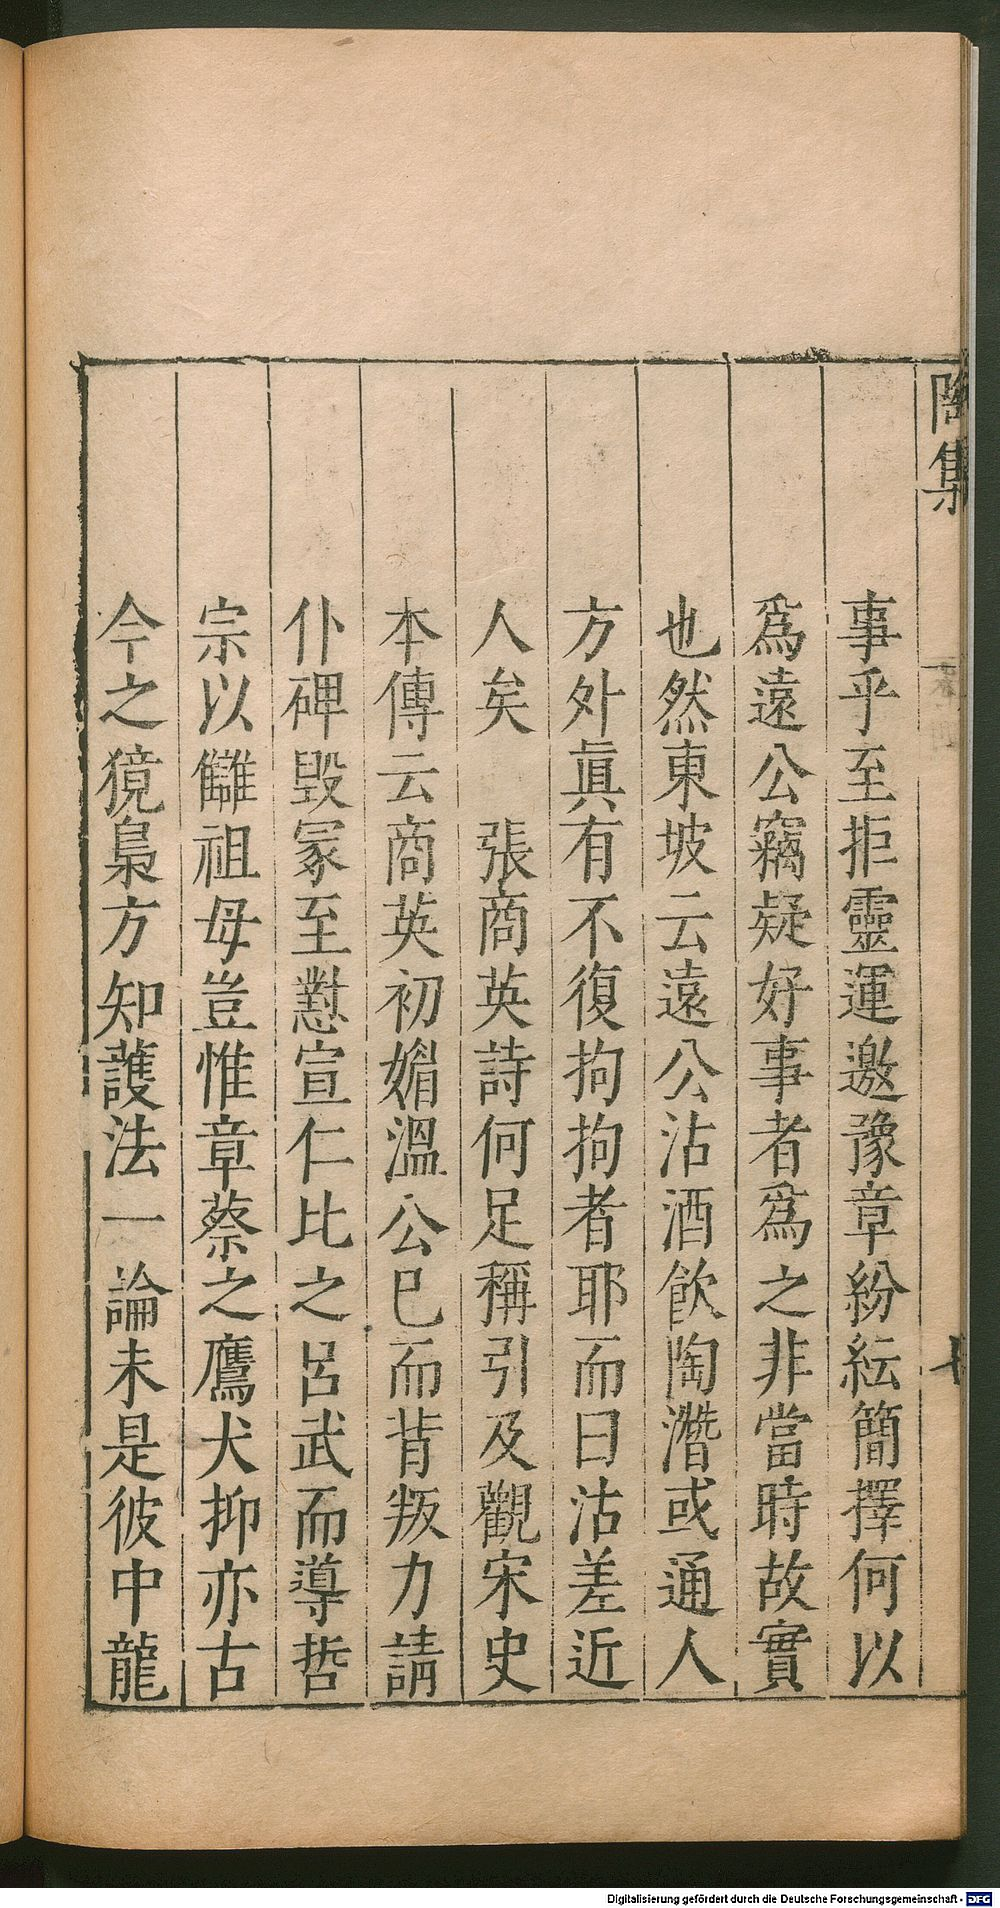 陶集
事乎至拒靈運邀豫章紛紜簡擇何以
爲遠公竊疑好事者爲之非當時故實
也然東坡云遠公沽酒飲陶潛或通人
方外眞有不復拘拘者耶而曰沽差近
人矣　張商英詩何足稱引及觀宋史
本傳云商英初媚溫公已而背叛力請
仆碑毁冢至懟宣仁比之呂武而導哲
宗以讎祖母豈惟章蔡之鷹犬抑亦古
今之獍梟方知護法一論未是彼中龍
Digitalisierung gefördert durch die Deutsche Forschungsgemeinschaft - DFG